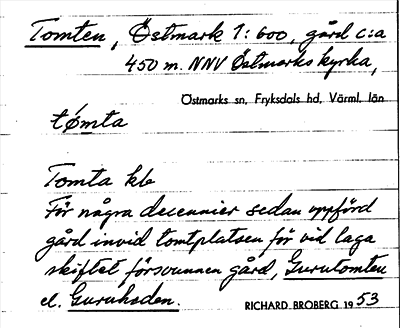 Tomten, Östmark 1:600, gård c:a
450 m. NNV Östmarks kyrka,
Östmarks sn, Fryksdals hd, Värml. län
tømta
Tomta kb
För några decennier sedan uppförd
gård invid tomtplatsen för vid laga
skiftet försvunnen gård, Gurutomten
el. Guruheden.
RICHARD BROBERG 1953